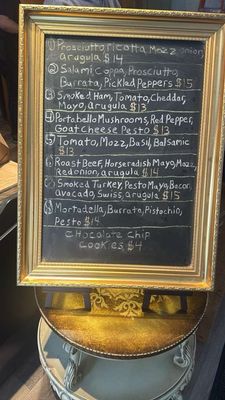 ① Prosciutto, ricotta, Mozz, onion,
arugula $14
② Salami, Coppa, Prosciutto,
Burrata, Pickled Peppers $15
③ Smoked Ham, Tomato, Cheddar,
Mayo, arugula $13
④ Portabello Mushrooms, Red Pepper,
Goat Cheese Pesto $13
⑤ Tomato, Mozz, Basil, Balsamic
$13
⑥ Roast Beef, Horseradish Mayo, Mozz,
Red onion, arugula $14
⑦ Smoked Turkey, Pesto Mayo, Bacon,
avocado, Swiss, arugula $15
⑧ Mortadella, Burrata, Pistachio,
Pesto $14
Chocolate Chip
Cookies $4